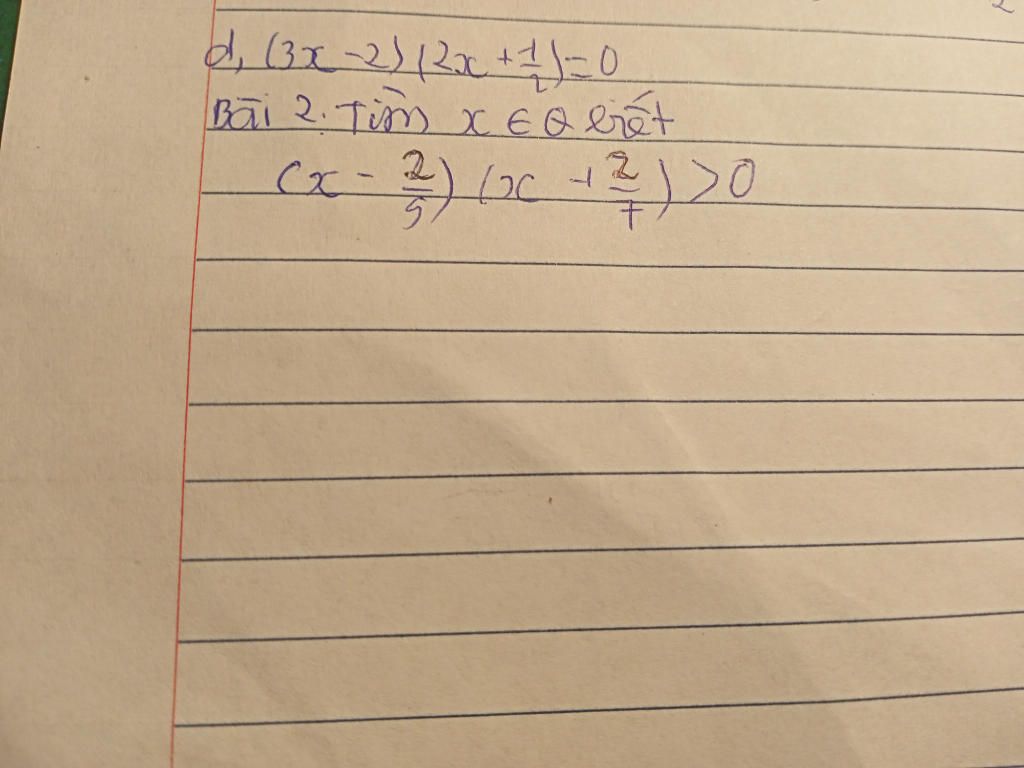 d, (3x - 2) (2x + 1/2) = 0
Bài 2. Tìm x ∈ Q biết
(x - 2/5) (x + 2/7) > 0